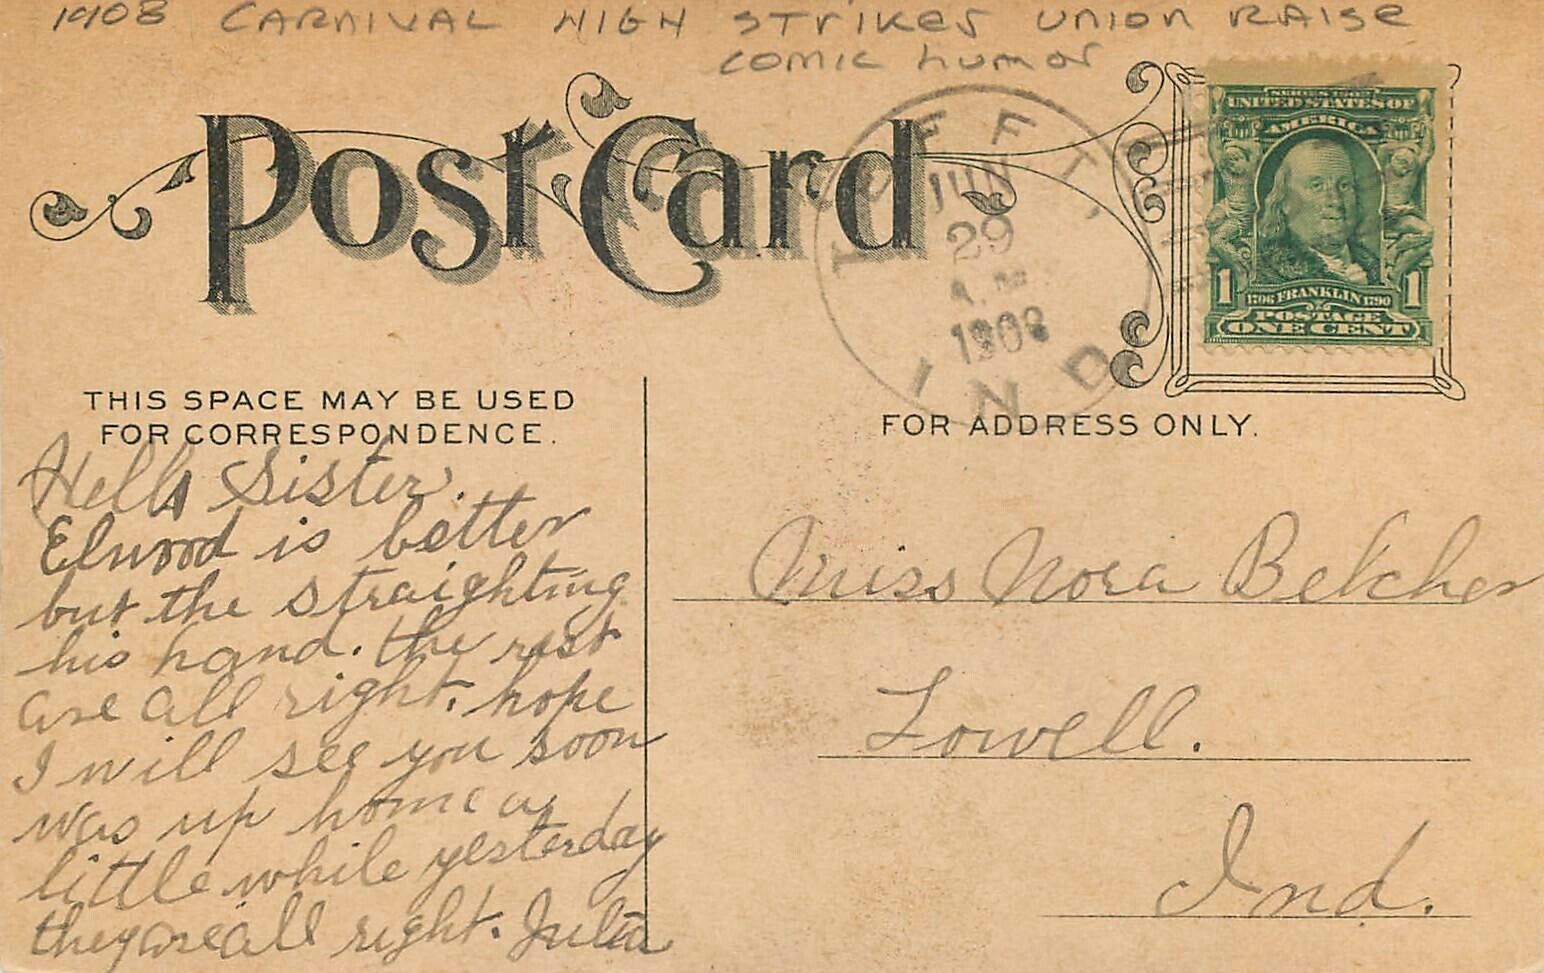 1908 CARNIVAL HIGH STRIKES UNION RAISE
COMIC HUMOR
Post Card
TEFFT,
JUN
29
A.M.
1908
IND
SERIES 1902
UNITED STATES OF
AMERICA
1 1
1706 FRANKLIN 1790
POSTAGE
ONE CENT
THIS SPACE MAY BE USED
FOR CORRESPONDENCE.
FOR ADDRESS ONLY.
Hello Sister.
Elwood is better
but the straighting
his hand. the rest
are all right. hope
I will see you soon
was up home a
little while yesterday
they are all right. Julia
Miss Nora Belcher
Lowell.
Ind.